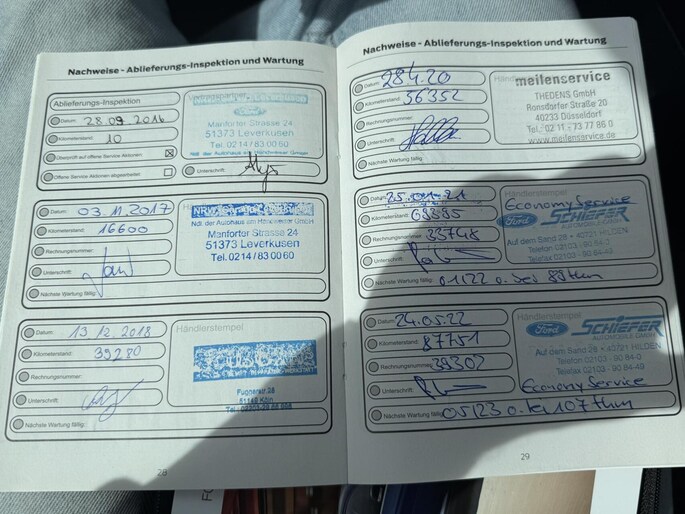 Nachweise - Ablieferungs-Inspektion und Wartung
Ablieferungs-Inspektion
Datum: 28.09.2016
Kilometerstand: 10
Überprüft auf offene Service Aktionen: ☒
Offene Service Aktionen abgearbeitet: ☐
Ford
Manforter Strasse 24
51373 Leverkusen
Tel. 0214/83 00 60
Ndl. der Autohaus am Handweiser GmbH
Unterschrift:
Datum: 03.11.2017
Kilometerstand: 16600
Rechnungsnummer:
Unterschrift:
Nächste Wartung fällig:
Ndl. der Autohaus am Handweiser GmbH
Manforter Strasse 24
51373 Leverkusen
Tel. 0214/83 00 60
Datum: 13.12.2018
Kilometerstand: 39280
Rechnungsnummer:
Unterschrift:
Nächste Wartung fällig:
Händlerstempel
Köln
28
Nachweise - Ablieferungs-Inspektion und Wartung
Datum: 28.4.20
Kilometerstand: 56352
Rechnungsnummer:
Unterschrift:
Nächste Wartung fällig:
meilenservice
THEDENS GmbH
Ronsdorfer Straße 20
40233 Düsseldorf
Tel. 02 11 - 73 77 86 0
www.meilenservice.de
Datum: 25.01.21
Kilometerstand: 68885
Rechnungsnummer: 33748
Unterschrift:
Nächste Wartung fällig: 01/22 o. bei 88tkm
Händlerstempel
Economy Service
Ford SCHIEFER
Auf dem Sand 28 • 40721 HILDEN
Telefon 02103 - 90 84-0
Telefax 02103 - 90 84-49
Datum: 24.05.22
Kilometerstand: 87751
Rechnungsnummer: 39302
Unterschrift:
Nächste Wartung fällig: 05/23 o. bei 107tkm
Händlerstempel
Ford SCHIEFER
AUTOMOBILE GMBH
Auf dem Sand 28 • 40721 HILDEN
Telefon 02103 - 90 84-0
Telefax 02103 - 90 84-49
Economy Service
29